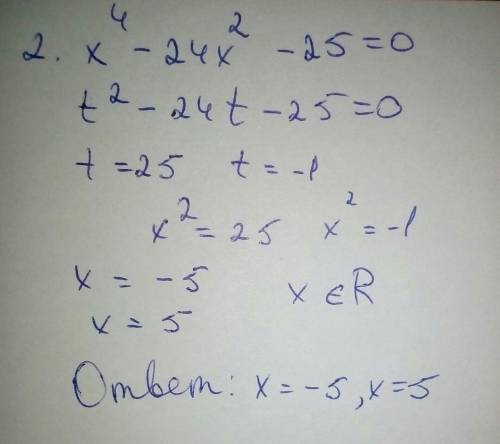 2. x⁴ - 24x² - 25 = 0
t² - 24t - 25 = 0
t = 25 t = -1
x² = 25 x² = -1
x = -5 x ∈ R
x = 5
Ответ: x = -5, x = 5